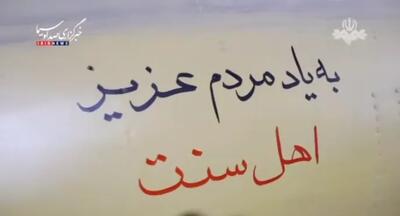 خبرگزاری صدا و سیما
IRIBNEWS
به یاد مردم عزیز
اهل سنت